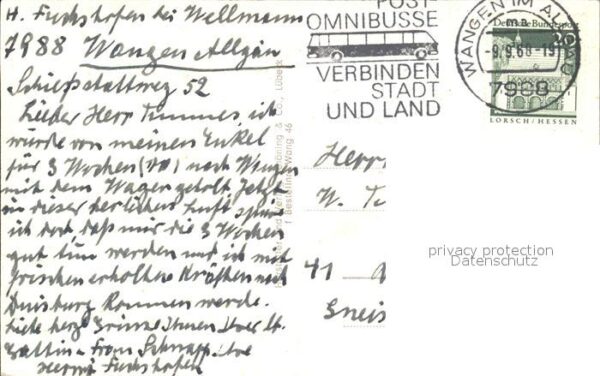 H. Fuchshofen bei Wellmann
7988 Wangen Allgäu
Schießstattweg 52
Lieber Herr Timmes, ich
wurde von meinen Enkel
für 3 Wochen nach Wangen
mit dem Wagen geholt. Jetzt
in dieser herrlichen Luft spüre
ich doch daß mir die 3 Wochen
gut tun werden und ich mit
frischen erholten Kräften nach
Duisburg kommen werde.
herzl Grüsse Ihnen Ihrer
Gattin Frau Schnapp Ihre
Fuchshofen
POST-
OMNIBUSSE
VERBINDEN
STADT
UND LAND
WANGEN IM ALLG
-9.9.68-19
7988
Deutsche Bundespost
20
LORSCH/HESSEN
Herr
W. T
41
Gneis
privacy protection
Datenschutz
Lübeck
Wang 46